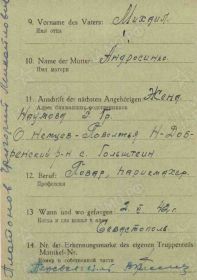 9. Vorname des Vaters: Михаил.
Имя отца
10. Name der Mutter: Андросенко.
Имя матери
11. Anschrift der nächsten Angehörigen Жена
Адрес ближайших родственников
Наумова Э. Гр.
О. Немцов-Поволжья Н-Доб-
ренский р-н с. Гольштейн
12. Beruf: Повар, парикмахер.
Профессия
13 Wann und wo gefangen 2. 42г.
Когда и где взят в плен
Севастополь
14. Nr. der Erkennungsmarke des eigenen Truppenteils
Matrikel-Nr.
Номер в собственной части
Платонов Григорий Михайлович